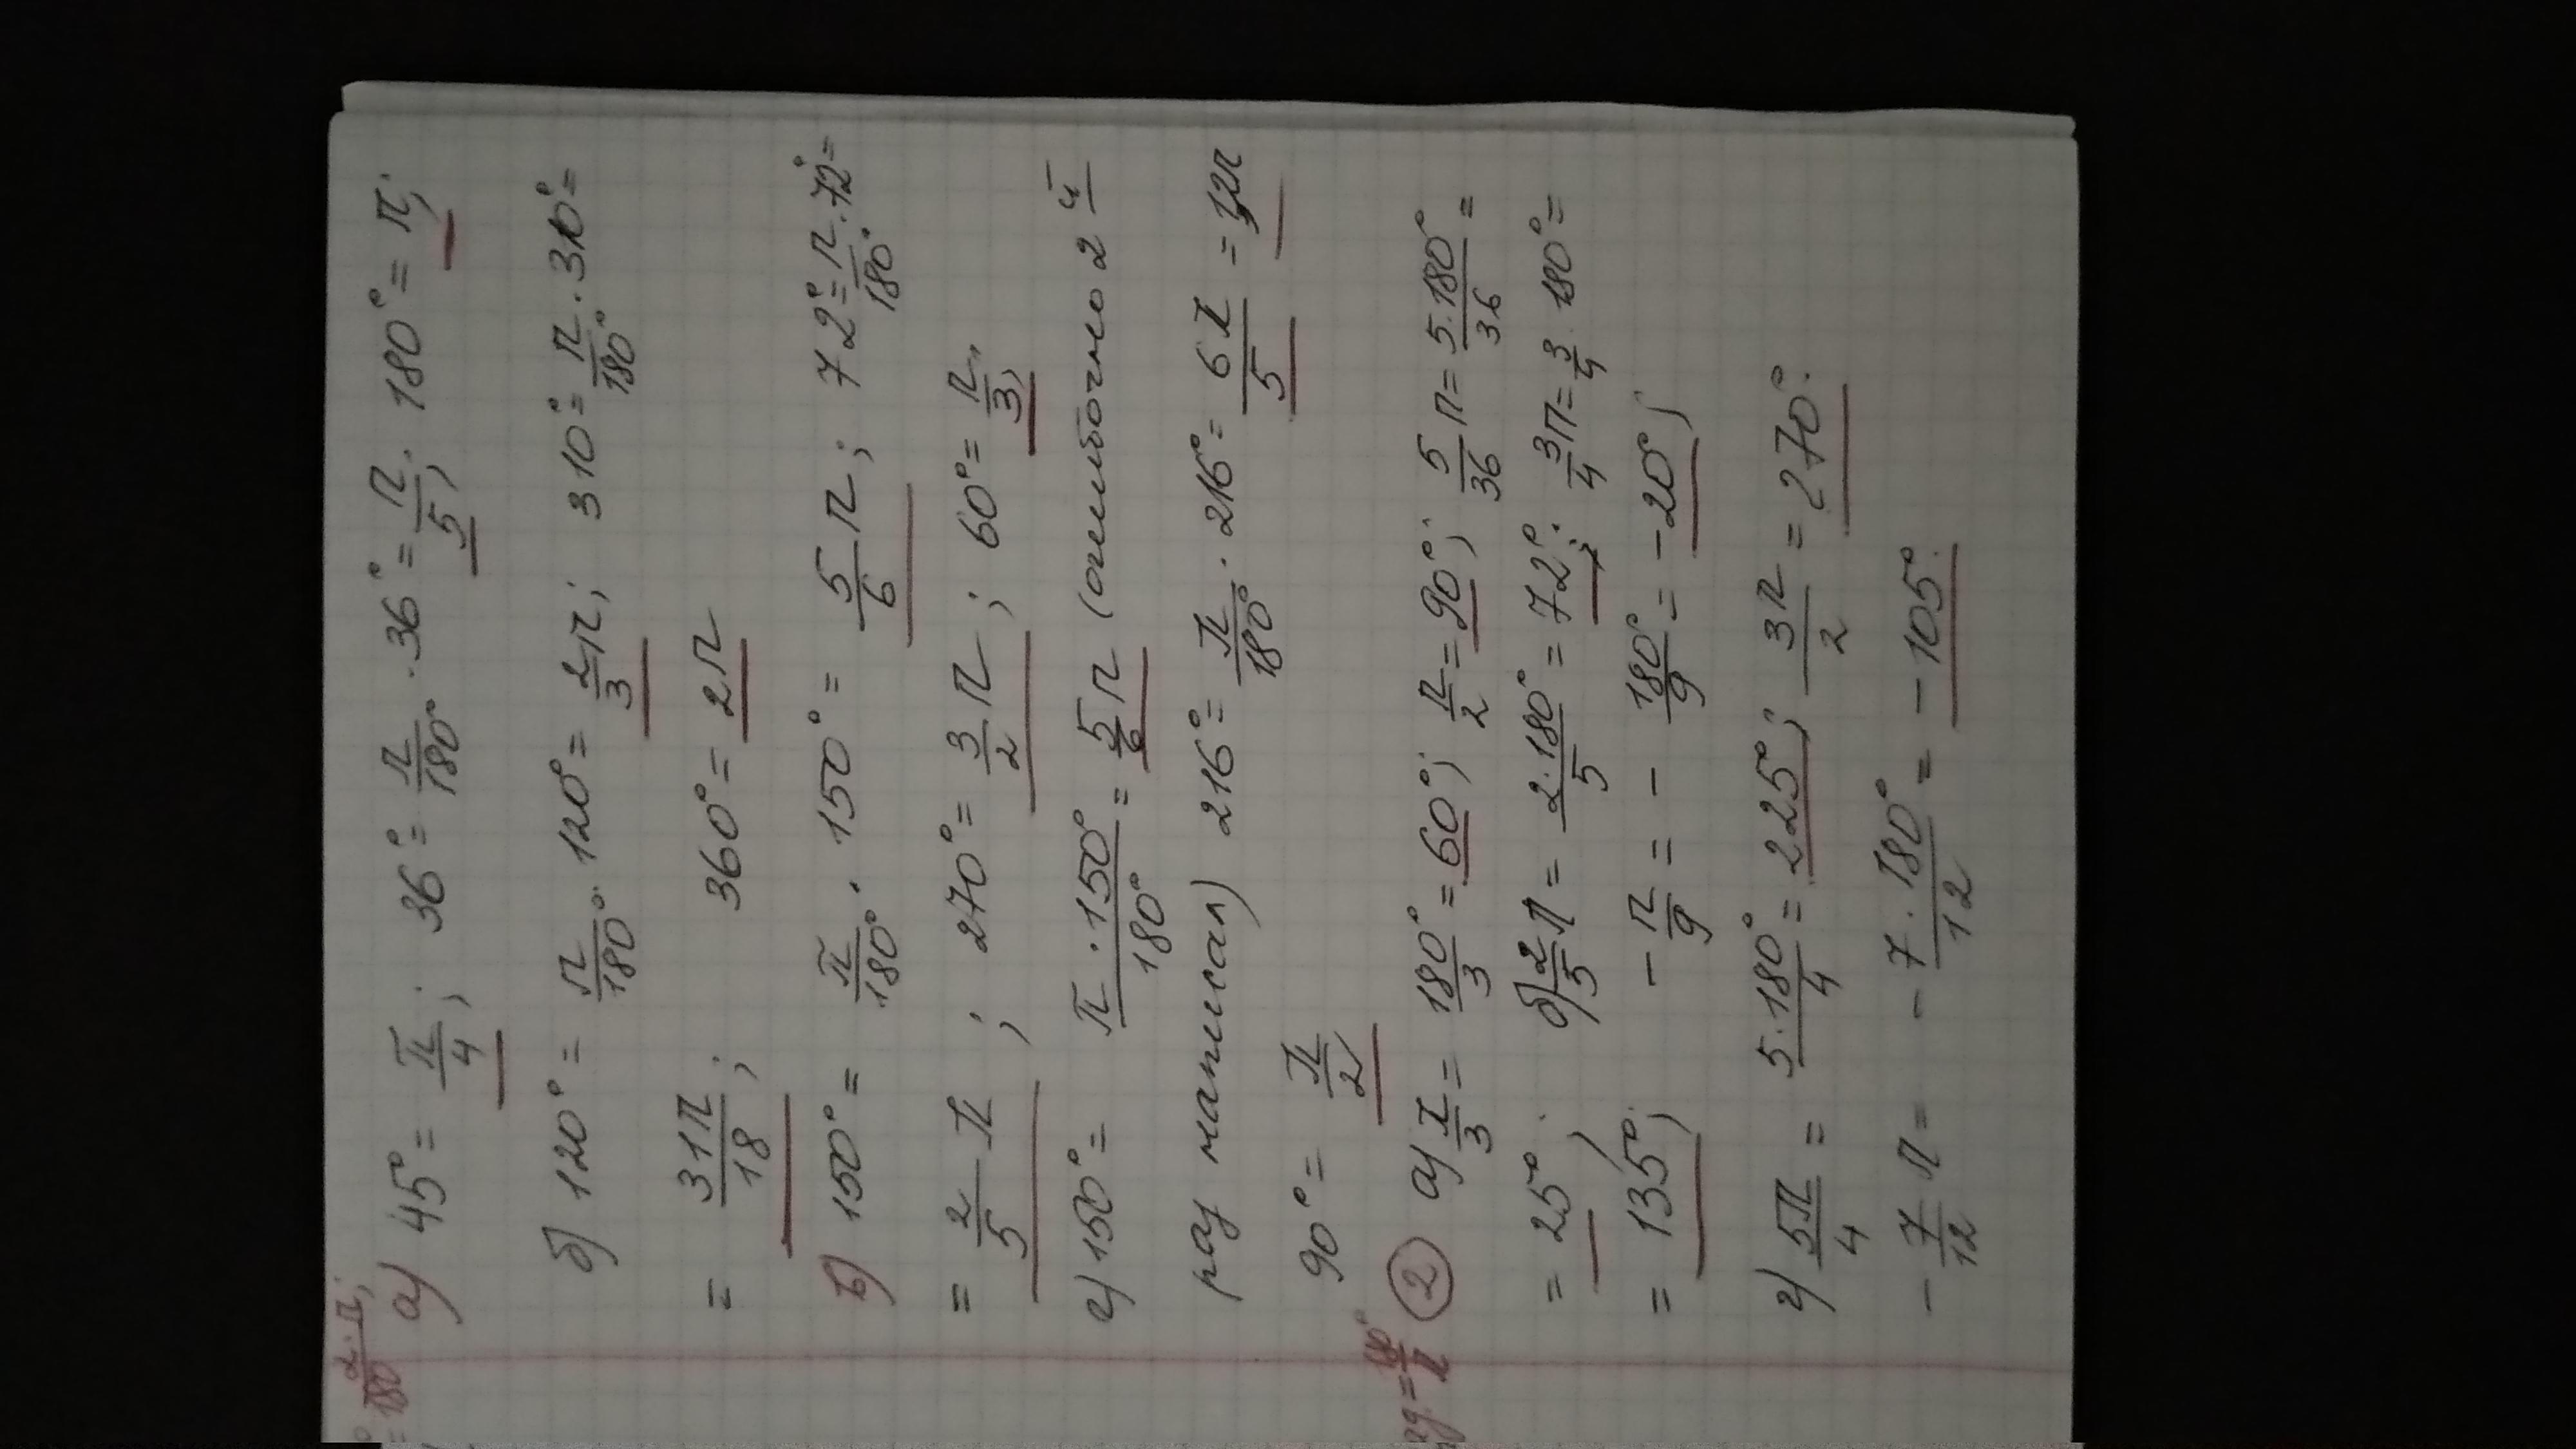 ° = α·π/180;
а) 45° = π/4; 36° = π/180° · 36° = π/5; 180° = π;
б) 120° = π/180° · 120° = 2/3 π; 310° = π/180° · 310° =
= 31π/18; 360° = 2π
в) 150° = π/180° · 150° = 5/6 π; 72° = π/180° · 72° =
= 2/5 π; 270° = 3/2 π; 60° = π/3;
г) 150° = π · 150°/180° = 5/6 π (ошибочно 2й
раз написал) 216° = π/180° · 216° = 6π/5 = 1,2π
90° = π/2
= 180°/π ② а) π/3 = 180°/3 = 60°; π/2 = 90°; 5/36 π = 5·180°/36 =
= 25°; б) 2/5 π = 2·180°/5 = 72°; 3/4 π = 3/4 · 180° =
= 135°; - π/9 = - 180°/9 = -20°;
г) 5π/4 = 5·180°/4 = 225°; 3π/2 = 270°.
- 7/12 π = - 7·180°/12 = - 105°.